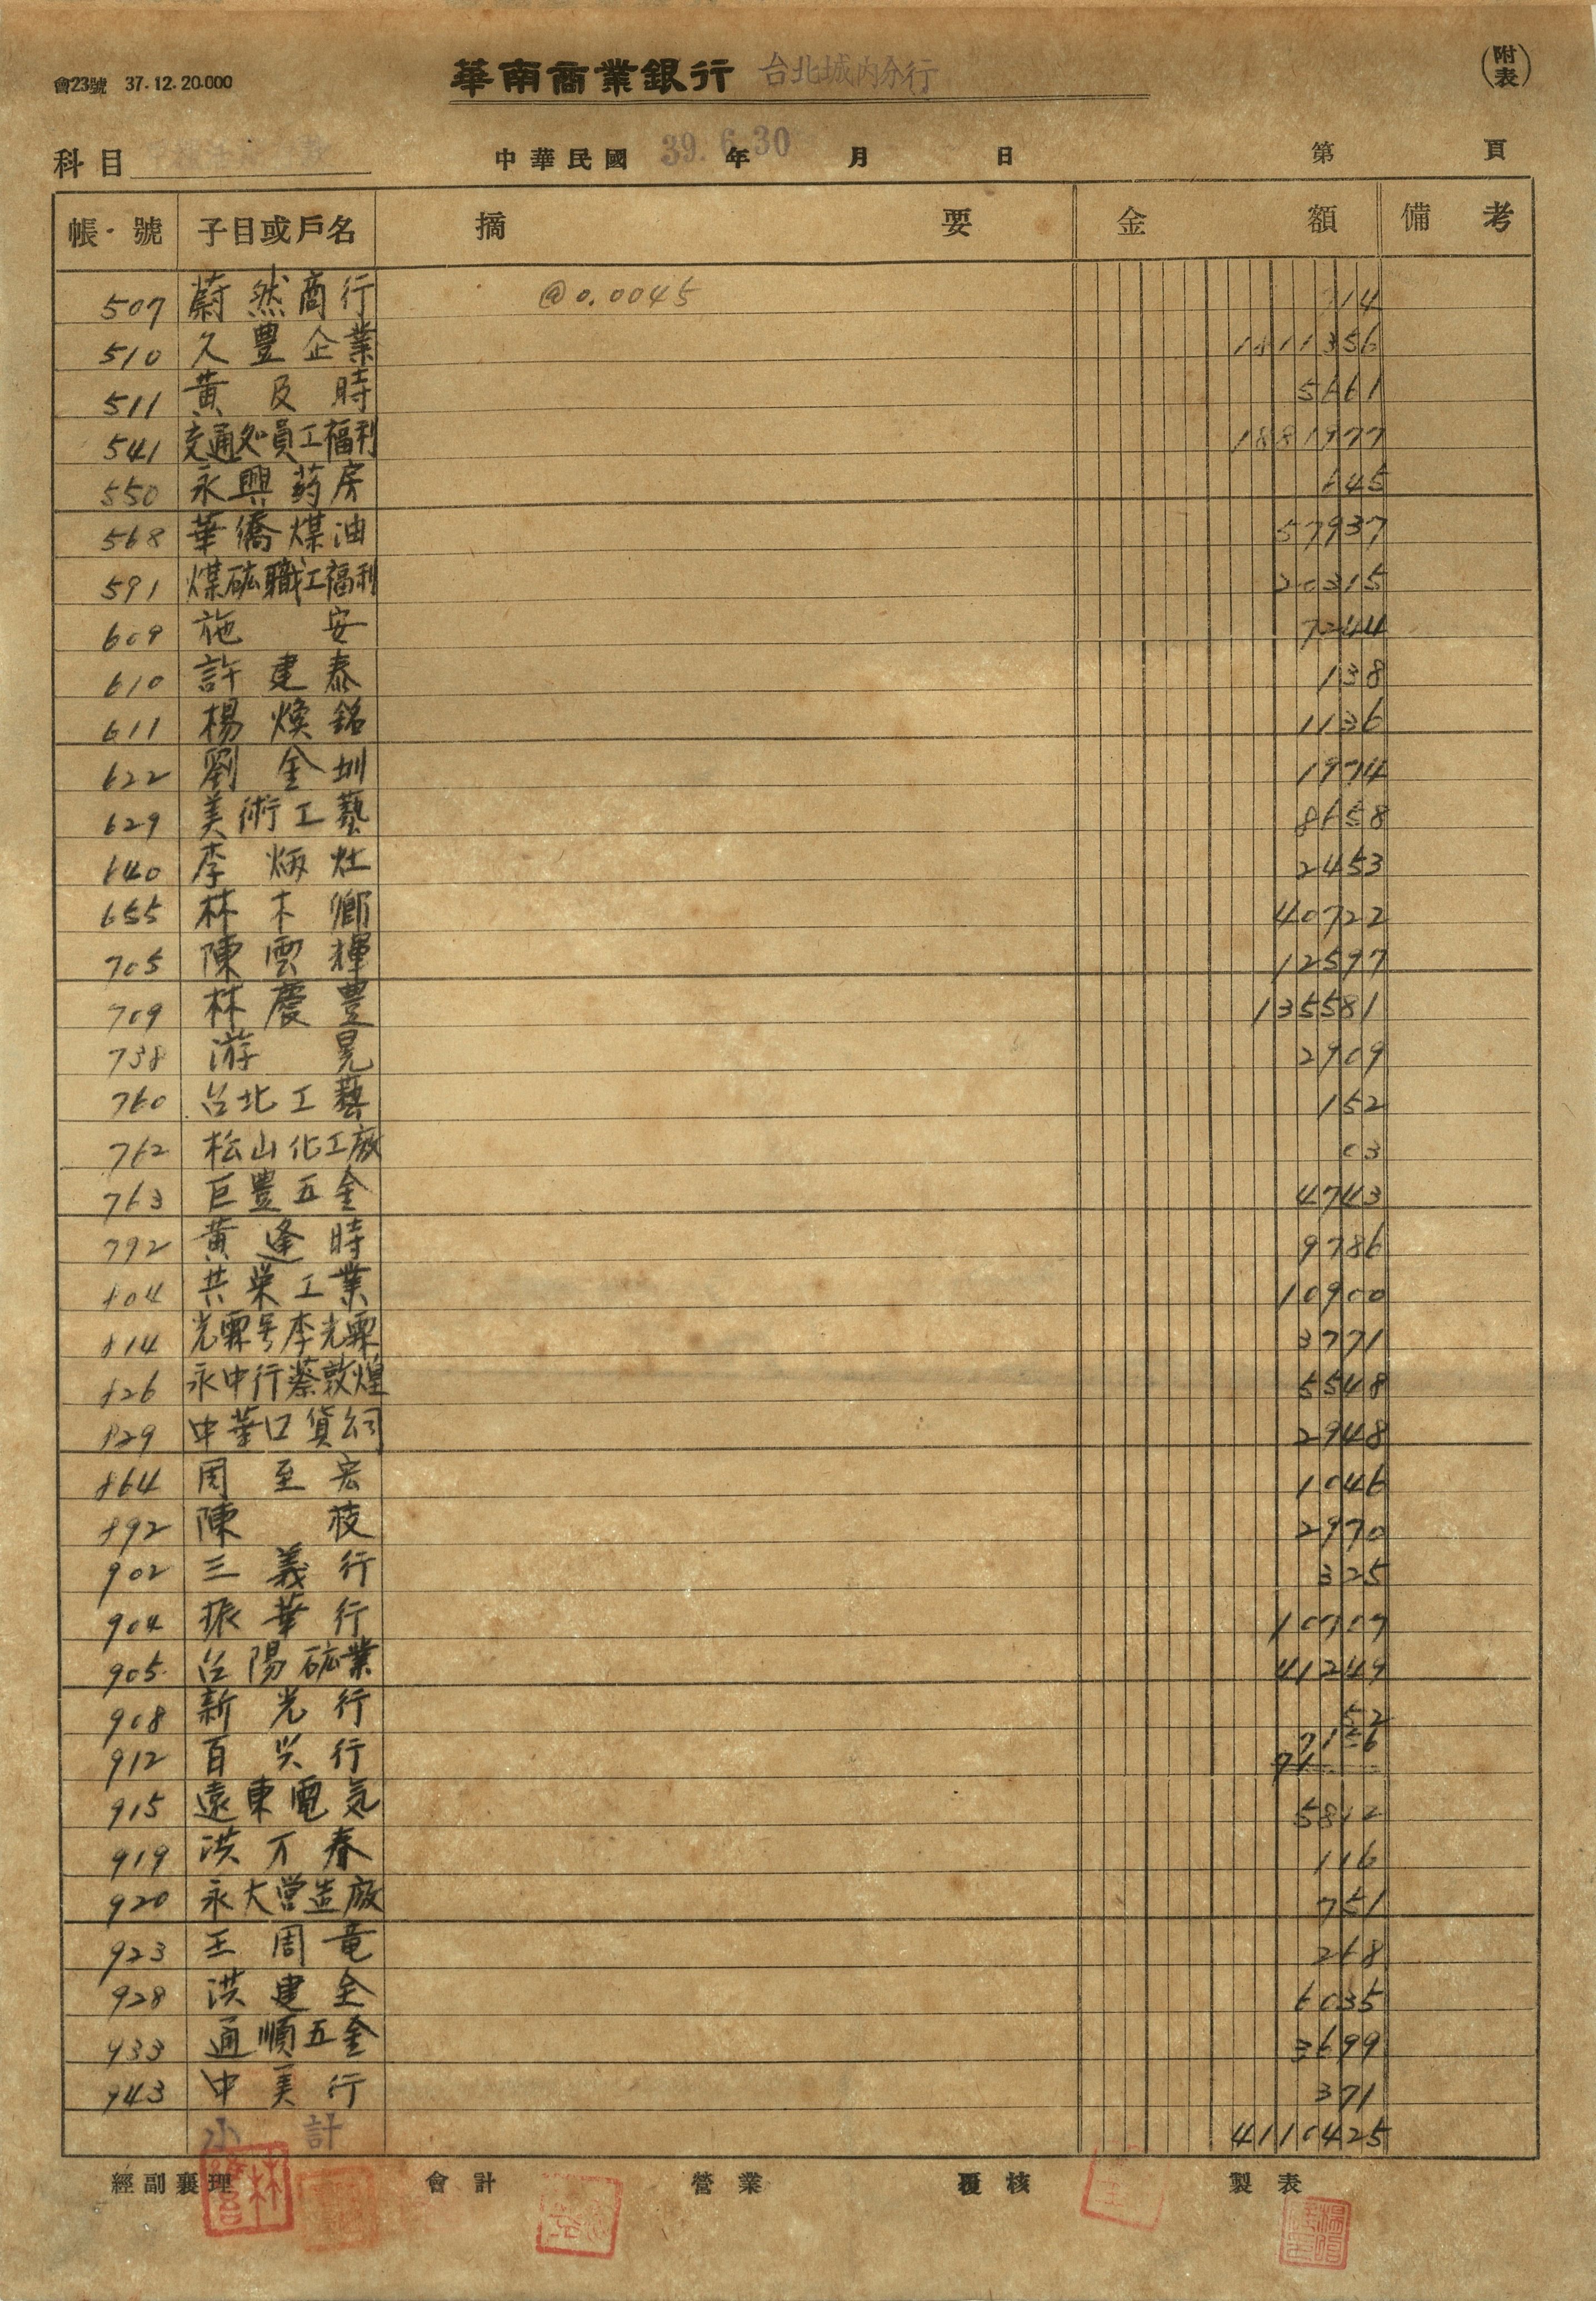 會23號 37.12.20.000
華南商業銀行 台北城內分行
(附表)
科目
中華民國 39.6.30 年 月 日
第 頁
帳號 子目或戶名 摘要 金額 備考
507 蔚然商行 @0.0045 714
510 久豊企業 1811356
511 黃及時 5661
541 交通処員工福利 1881977
550 永興药房 645
568 華僑煤油 57937
591 煤砿職工福利 20315
609 施安 7244
610 許建泰 138
611 楊煥銘 1136
622 劉金圳 1974
629 美術工藝 8658
640 李炳灶 2453
655 林木鄉 40722
705 陳雲輝 12597
709 林慶豊 135581
738 游晃 2909
760 台北工藝 152
762 松山化工廠 03
763 巨豊五金 4743
792 黃逢時 9786
804 共榮工業 10900
814 光霖号李光霖 3771
826 永中行蔡敦煌 5548
829 中華口貨公司 2948
864 周至宏 1046
892 陳枝 2970
902 三義行 325
904 振華行 10707
905 台陽砿業 41249
908 新光行 52
912 百兴行 7156
915 遠東電気 5812
919 洪万春 116
920 永大営造廠 751
923 王周竜 268
928 洪建全 6035
933 通順五金 3699
943 中美行 371
小計 4110425
經副襄理 會計 營業 覆核 製表